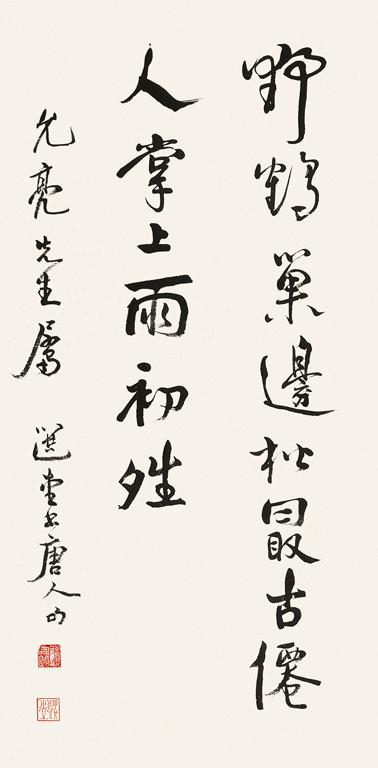 野鶴巢邊松最古僊
人掌上雨初夝
允亮先生屬 選堂書唐人句